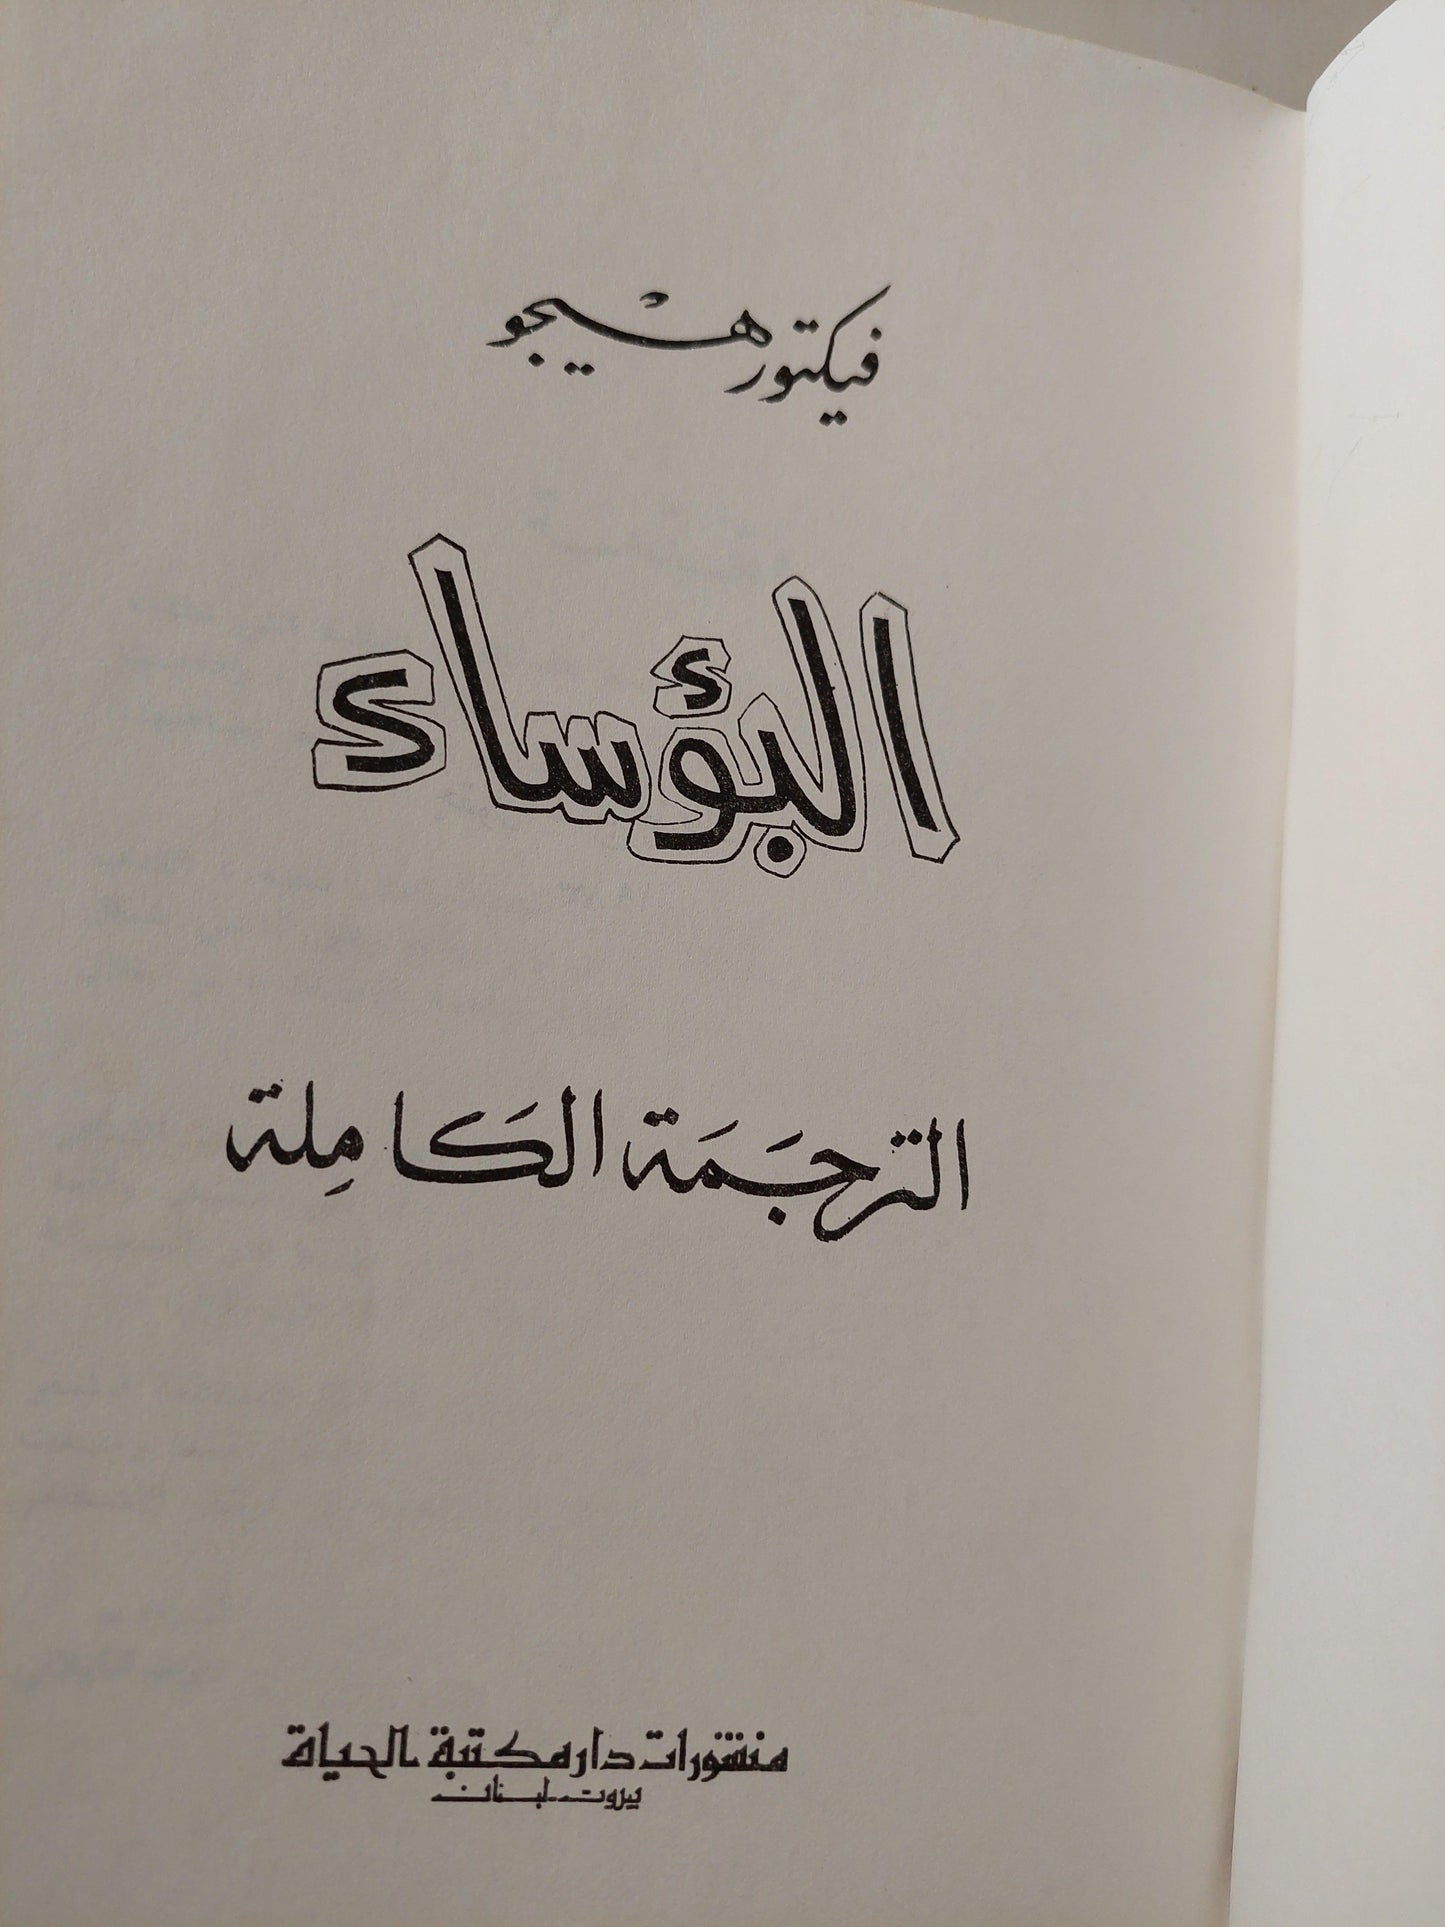 فيكتور هيجو
البؤساء
الترجَمَة الكَامِلة
منشورات دار مكتبة الحياة
بيروت - لبنان